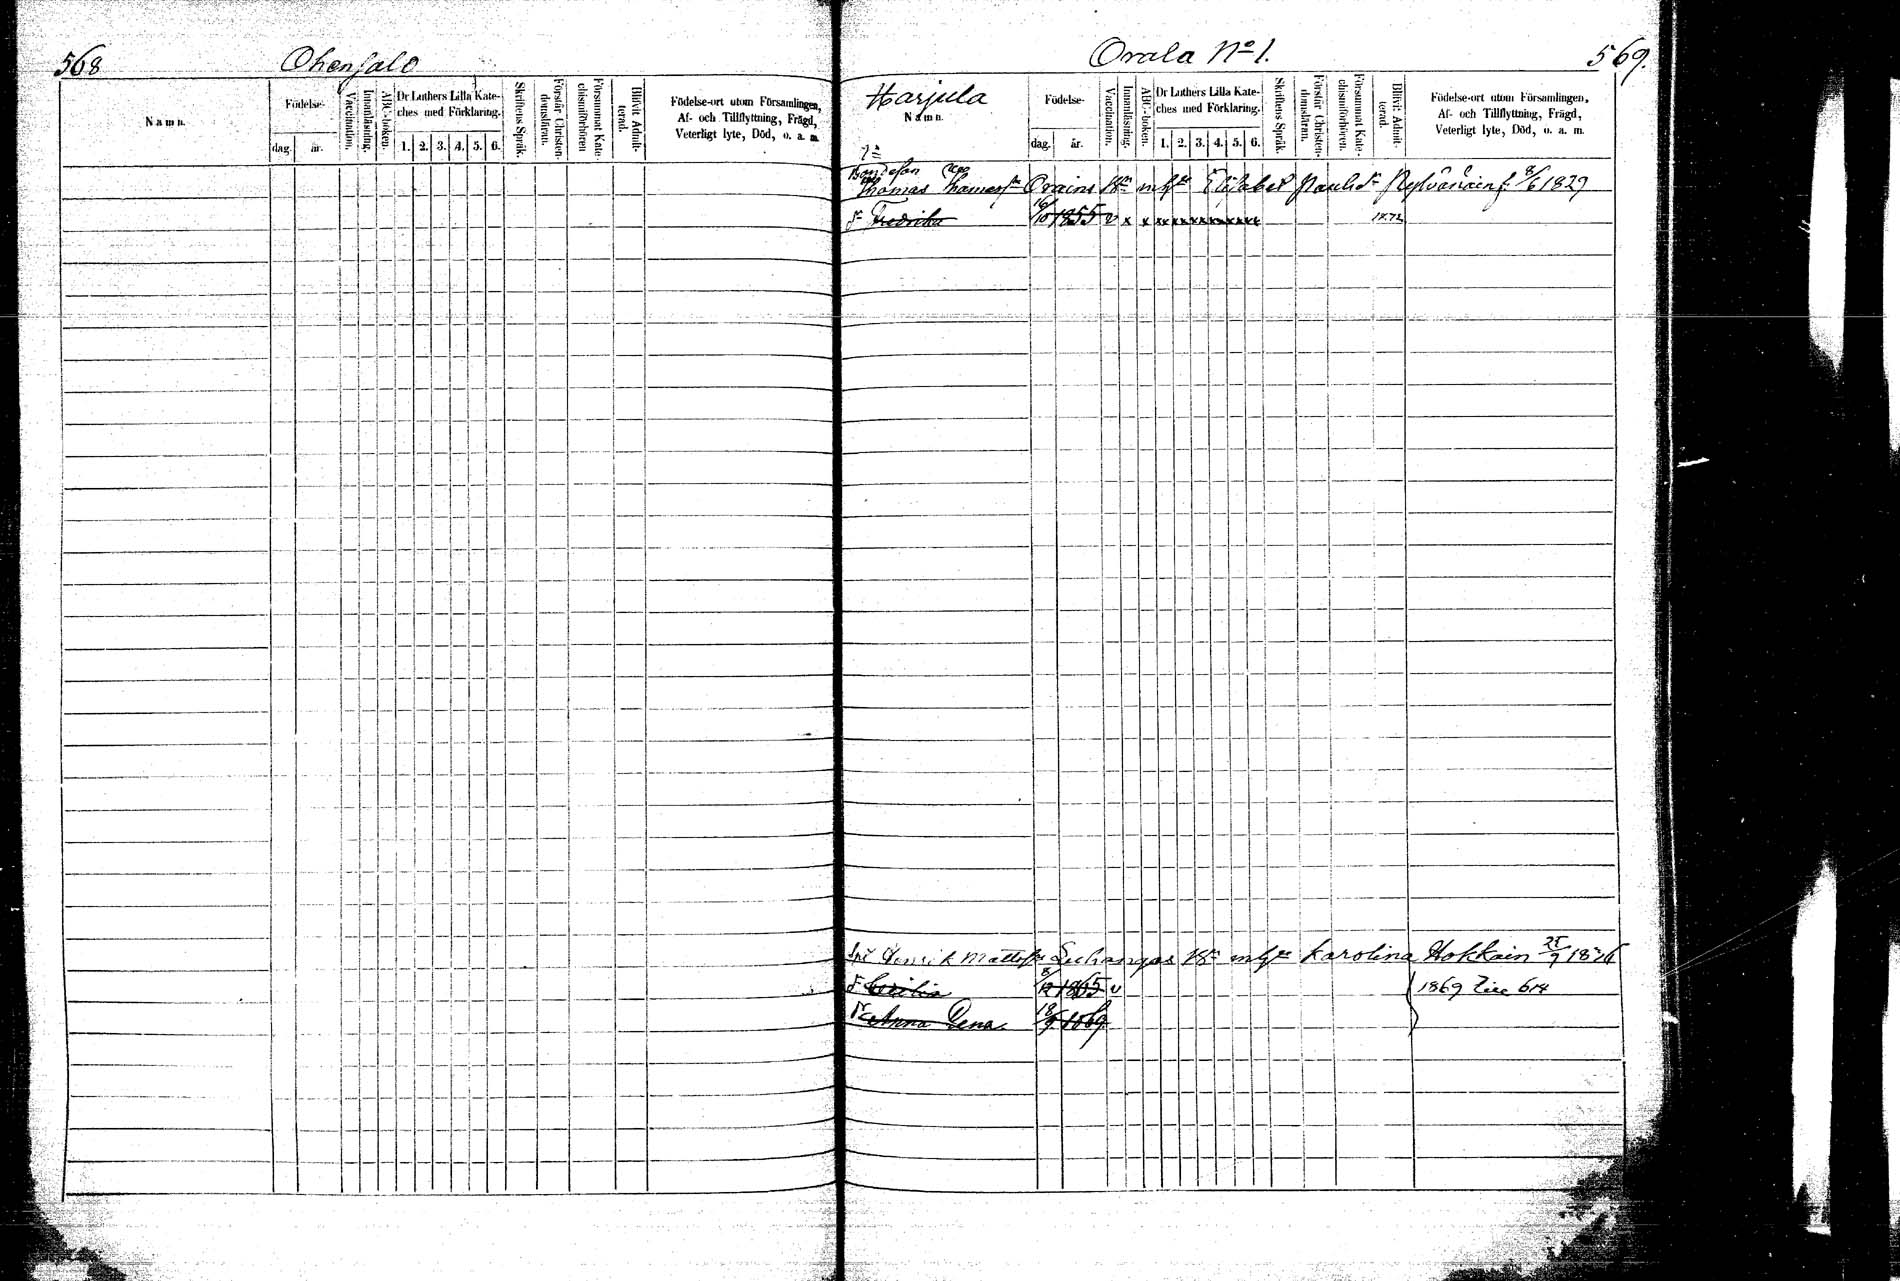 568
Ohensalo
Namn.
Födelse-
dag.
år.
Vaccination.
Innanläsning.
ABC-boken.
Dr Luthers Lilla Kate-
ches med Förklaring.
1. 2. 3. 4. 5. 6.
Skriftens Språk.
Förstår Christen-
domsläran.
Försummat Kate-
chismiförhören
Blifvit Admit-
terad.
Födelse-ort utom Församlingen,
Af- och Tillflyttning, Frägd,
Veterligt lyte, Död, o. a. m.
Orala No 1.
569.
Harjula
Namn.
Födelse-
dag.
år.
Vaccination.
Innanläsning.
ABC-boken.
Dr Luthers Lilla Kate-
ches med Förklaring.
1. 2. 3. 4. 5. 6.
Skriftens Språk.
Förstår Christen-
domsläran.
Försummat Kate-
chismiförhören.
Blifvit Admit-
terad.
Födelse-ort utom Församlingen,
Af- och Tillflyttning, Frägd,
Veterligt lyte, Död, o. a. m.
Thomas Orains Elisabet 8/6 1829
Fredrika 16/10 1855 v x x x x x x x x 1872
Henrik Karolina Hokkain
Cecilia 8/12 1865 v 1869 614
Anna Lena 18/9 1869